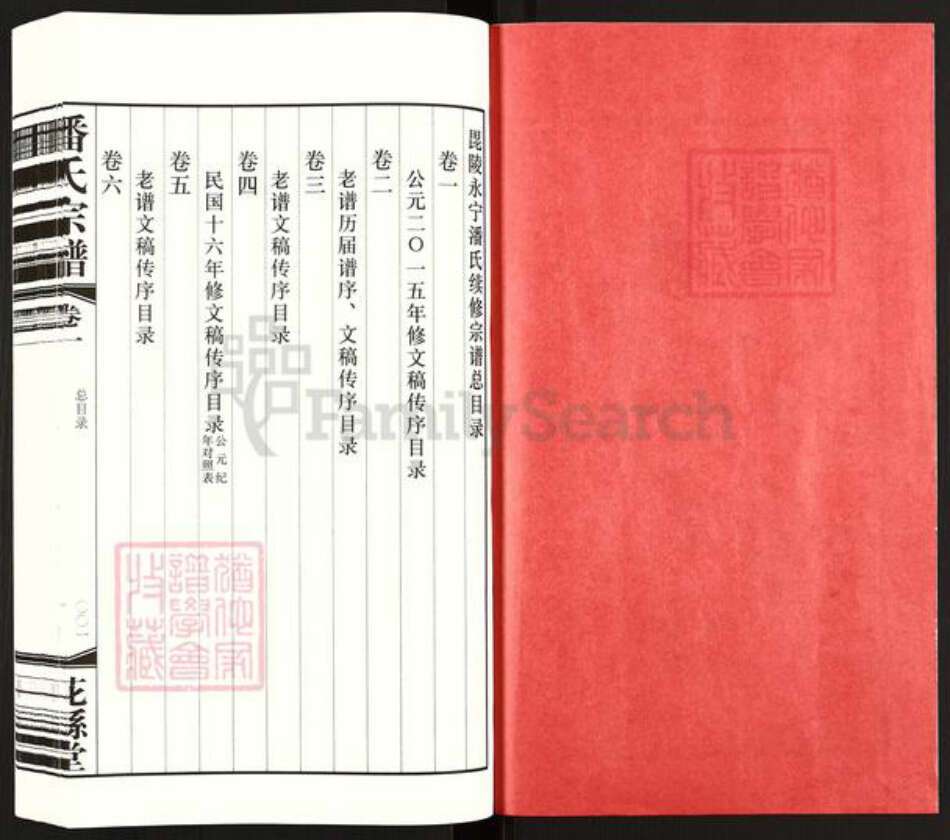 毘陵永宁潘氏续修宗谱总目录
卷一
公元二〇一五年修文稿传序目录
卷二
老谱历届谱序、文稿传序目录
卷三
老谱文稿传序目录
卷四
民国十六年修文稿传序目录公元纪年对照表
卷五
老谱文稿传序目录
卷六
潘氏宗谱
卷一
总目录
〇〇一
花县堂
FamilySearch
犹他家
谱学会
收藏